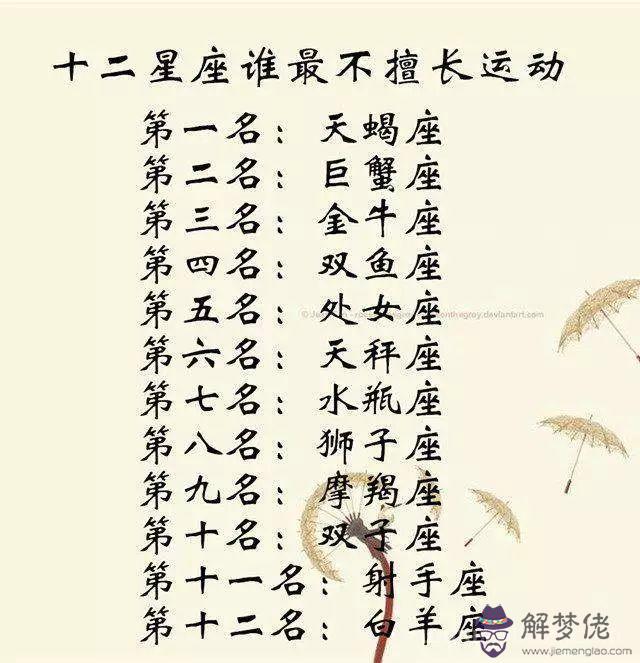 十二星座谁最不擅长运动
第一名：天蝎座
第二名：巨蟹座
第三名：金牛座
第四名：双鱼座
第五名：处女座
第六名：天秤座
第七名：水瓶座
第八名：狮子座
第九名：摩羯座
第十名：双子座
第十一名：射手座
第十二名：白羊座
解梦佬
www.jiemenglao.com